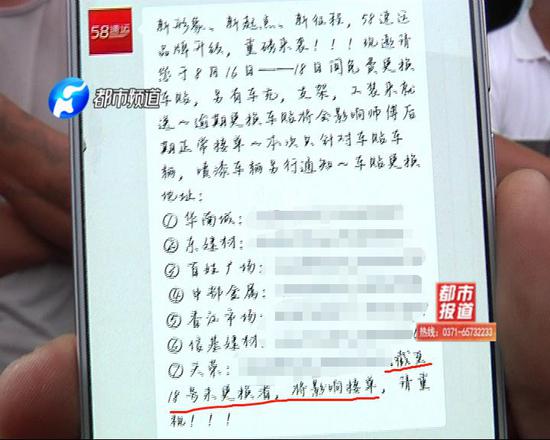 58速运
新形象、新起点、新征程，58速运
品牌升级，重磅来袭！！！现邀请
您于8月16日——18日间免费更换
车贴，另有车充，支架，工装来就
送～逾期更换车贴将会影响师傅后
期正常接单～本次只针对车贴车
辆，喷漆车辆另行通知～车贴更换
地址：
①华南城：
②东建材：
③百姓广场：
④中都金属：
⑤香江市场：
⑥信基建材：
⑦天荣：
,截至
18号未更换者，将影响接单，请重
视！！！
都市频道
都市
报道
热线：0371-65732233